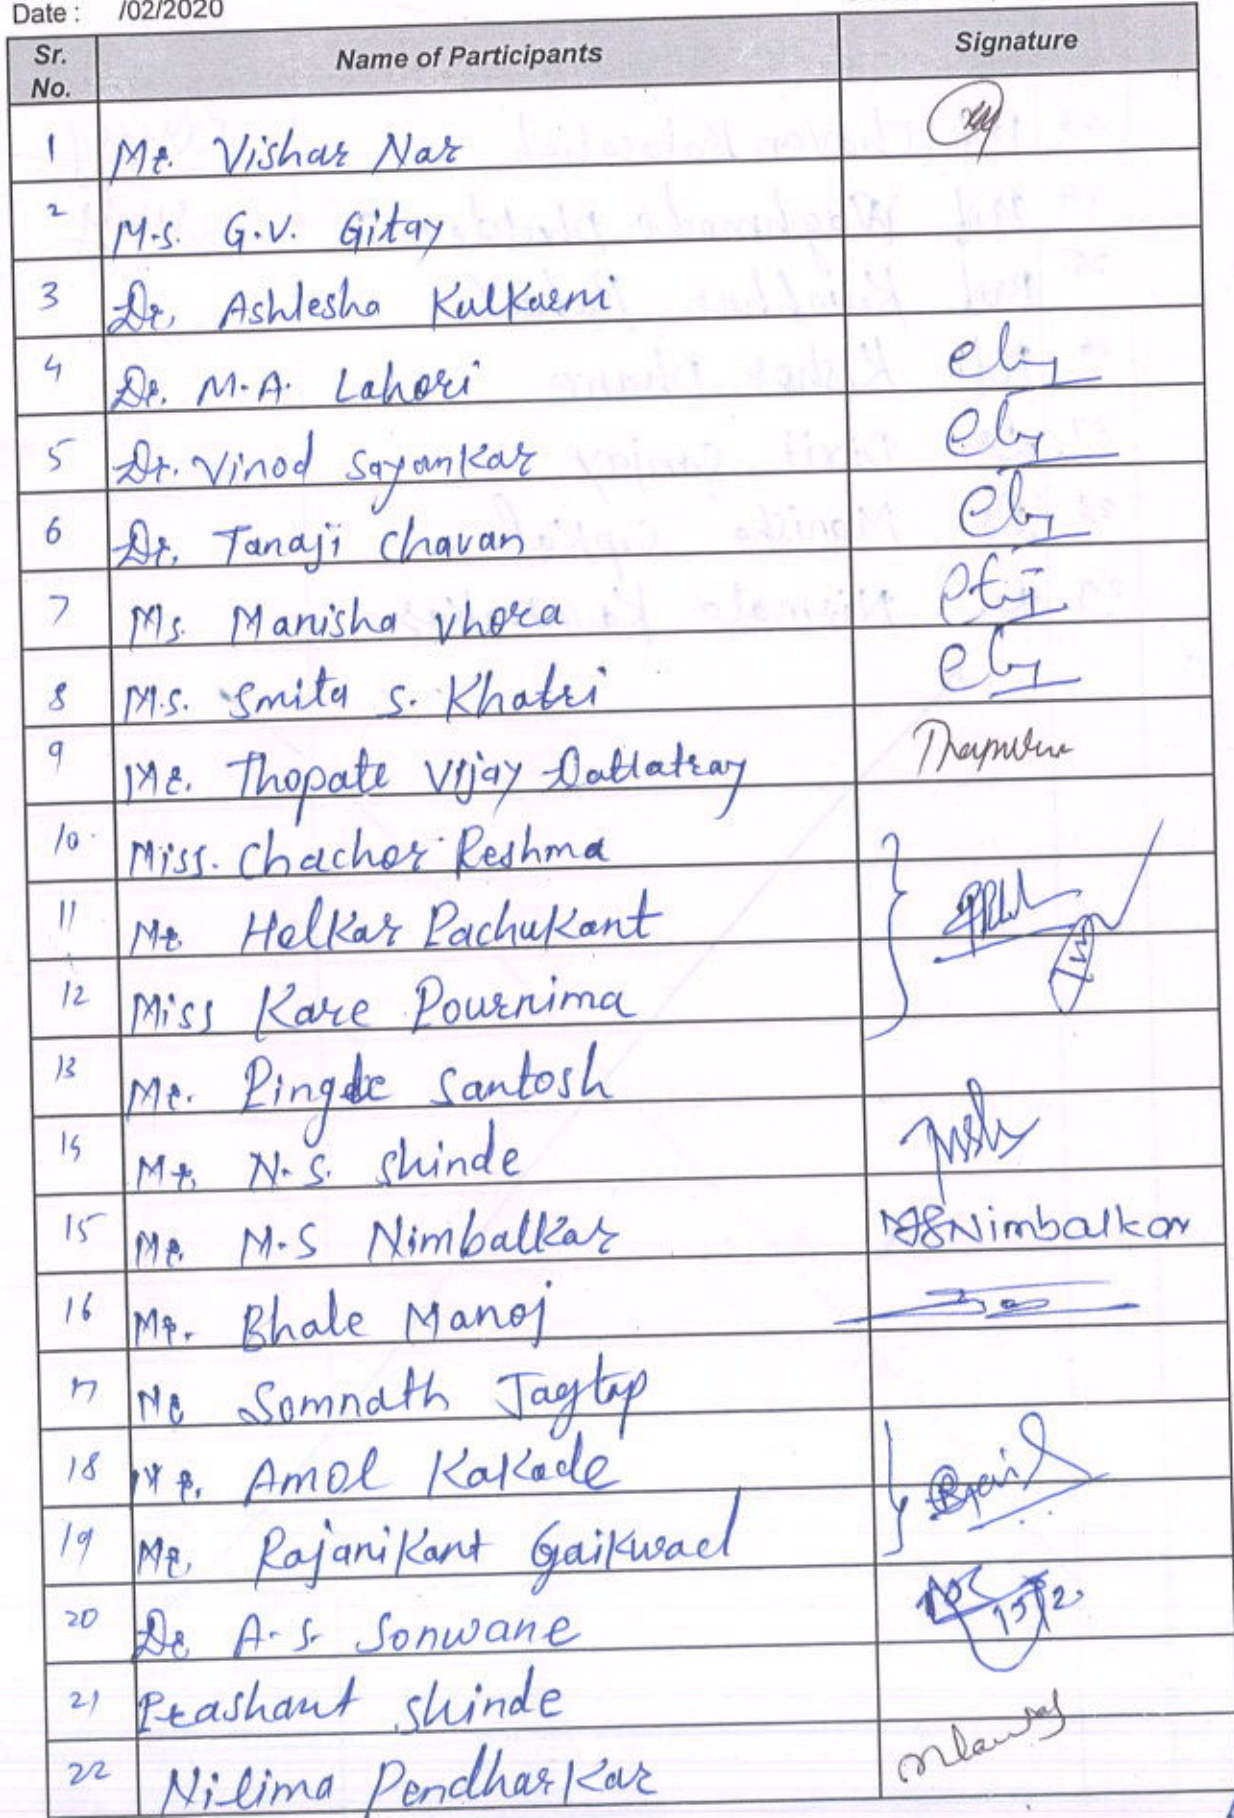 Date : /02/2020
Sr. No. Name of Participants Signature
1 Mr. Vishar Nar
2 M.s. G.V. Gitay
3 Dr. Ashlesha Kulkarni
4 Dr. M.A. Lahori
5 Dr. Vinod Sayankar
6 Dr. Tanaji Chavan
7 Ms. Manisha Vhora
8 M.s. Smita S. Khatri
9 Mr. Thopate Vijay Dattatray
10. Miss. Chachar Reshma
11 Mr Holkar Rachukant
12 Miss Kare Pournima
13 Mr. Pingale Santosh
14 Mr. N.S. Shinde
15 Mr. M.S Nimbalkar MSNimbalkar
16 Mr. Bhale Manoj
17 Mr Somnath Jagtap
18 Mr. Amol Kakade
19 Mr. Rajanikant Gaikwad
20 Dr A.S. Sonwane
21 Prashant Shinde
22 Nilima Pendharkar